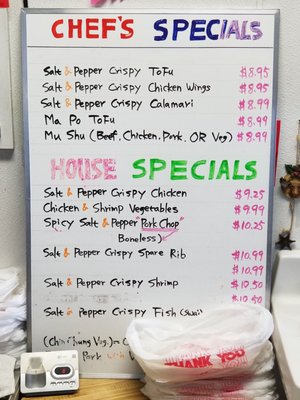 CHEF'S SPECIALS
Salt & Pepper Crispy Tofu $8.95
Salt & Pepper Crispy Chicken Wings $8.95
Salt & Pepper Crispy Calamari $8.99
Ma Po Tofu $8.99
Mu Shu (Beef, Chicken, Pork, OR Veg) $8.99
HOUSE SPECIALS
Salt & Pepper Crispy Chicken $9.25
Chicken & Shrimp Vegetables $9.99
Spicy Salt & Pepper "Pork Chop" $10.25
Boneless)
Salt & Pepper Crispy Spare Rib $10.99
$10.99
Salt & Pepper Crispy Shrimp $10.50
$10.50
Salt & Pepper Crispy Fish (Swai)
Pork
THANK YOU